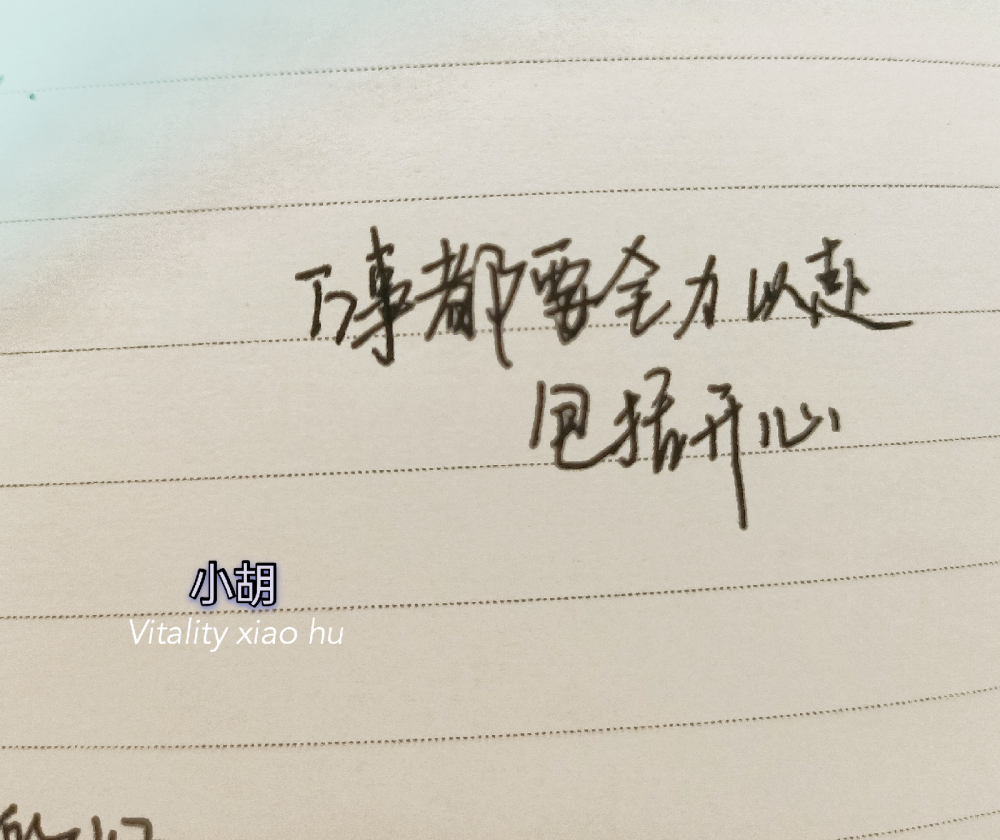 万事都要全力以赴
包括开心
小胡
Vitality xiao hu